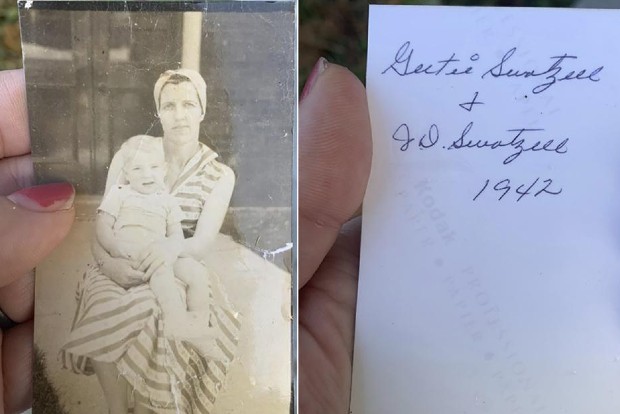 Gertie Swatzell
&
J.D. Swatzell
1942
Kodak